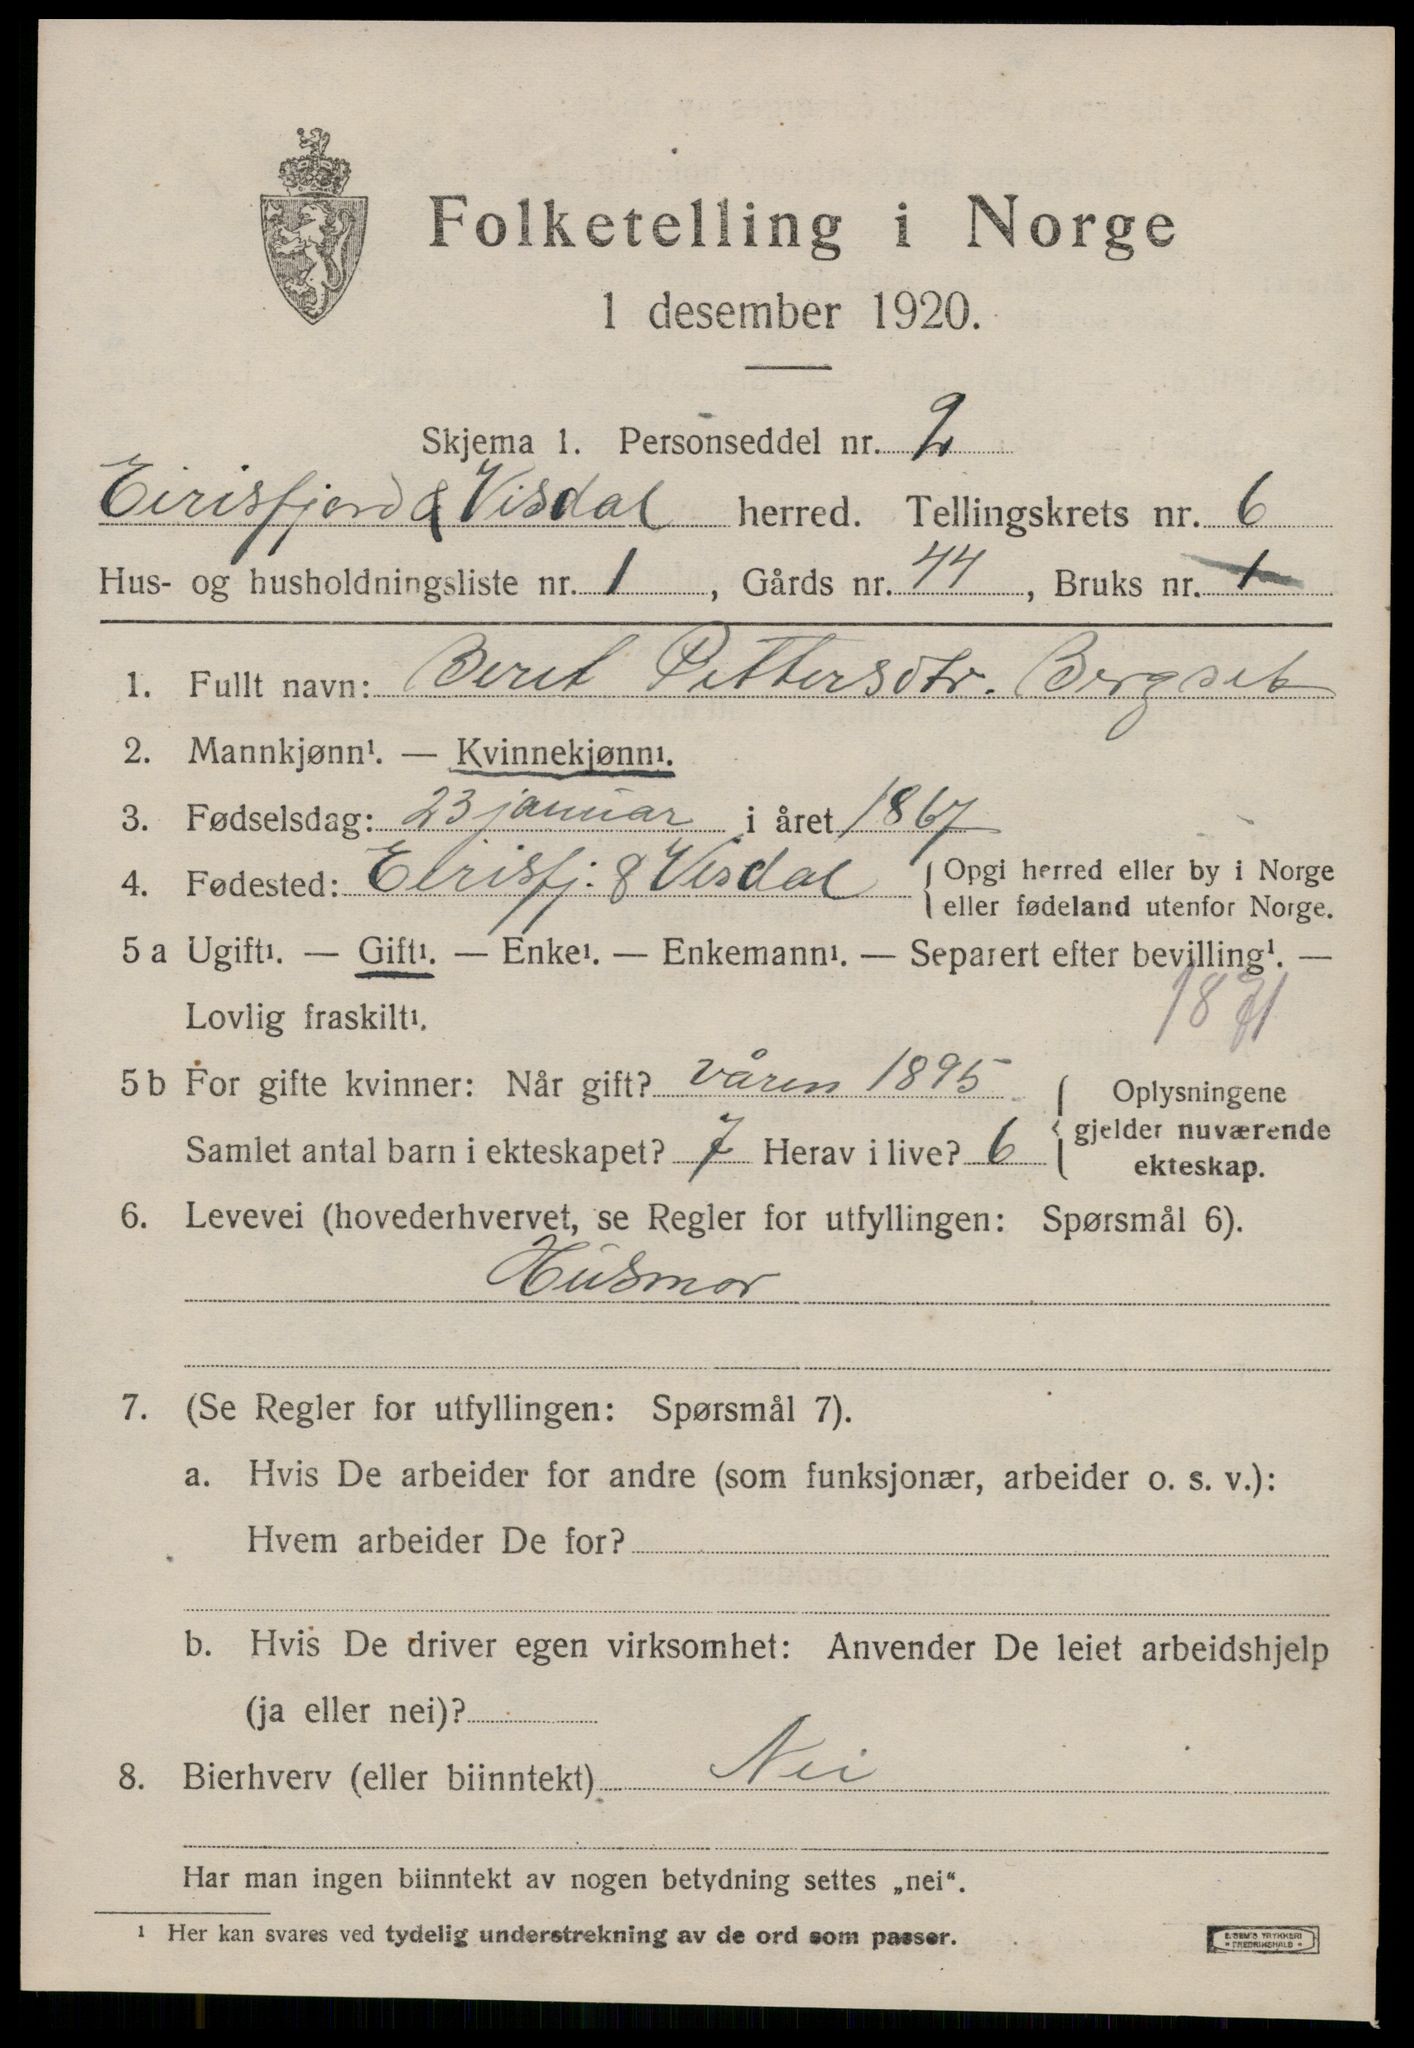 Folketelling i Norge
1 desember 1920.
Skjema 1. Personseddel nr. 2
Eirisfjord & Visdal herred. Tellingskrets nr. 6
Hus- og husholdningsliste nr. 1, Gårds nr. 44, Bruks nr. 1
1. Fullt navn: Beret Pettersdtr. Bergset
2. Mannkjønn¹. — Kvinnekjønn¹.
3. Fødselsdag: 23 januar i året 1867
4. Fødested: Eirisfj. & Visdal { Opgi herred eller by i Norge
eller fødeland utenfor Norge.
5 a Ugift¹. — Gift¹. — Enke¹. — Enkemann¹. — Separert efter bevilling¹. —
Lovlig fraskilt¹. 1871
5 b For gifte kvinner: Når gift? våren 1895
Samlet antal barn i ekteskapet? 7 Herav i live? 6
{ Oplysningene
gjelder nuværende
ekteskap.
6. Levevei (hovederhvervet, se Regler for utfyllingen: Spørsmål 6).
Husmor
7. (Se Regler for utfyllingen: Spørsmål 7).
a. Hvis De arbeider for andre (som funksjonær, arbeider o. s. v.):
Hvem arbeider De for?
b. Hvis De driver egen virksomhet: Anvender De leiet arbeidshjelp
(ja eller nei)?
8. Bierhverv (eller biinntekt) Nei
Har man ingen biinntekt av nogen betydning settes „nei“.
¹ Her kan svares ved tydelig understrekning av de ord som passer.
E. SEM'S TRYKKERI
FREDRIKSHALD